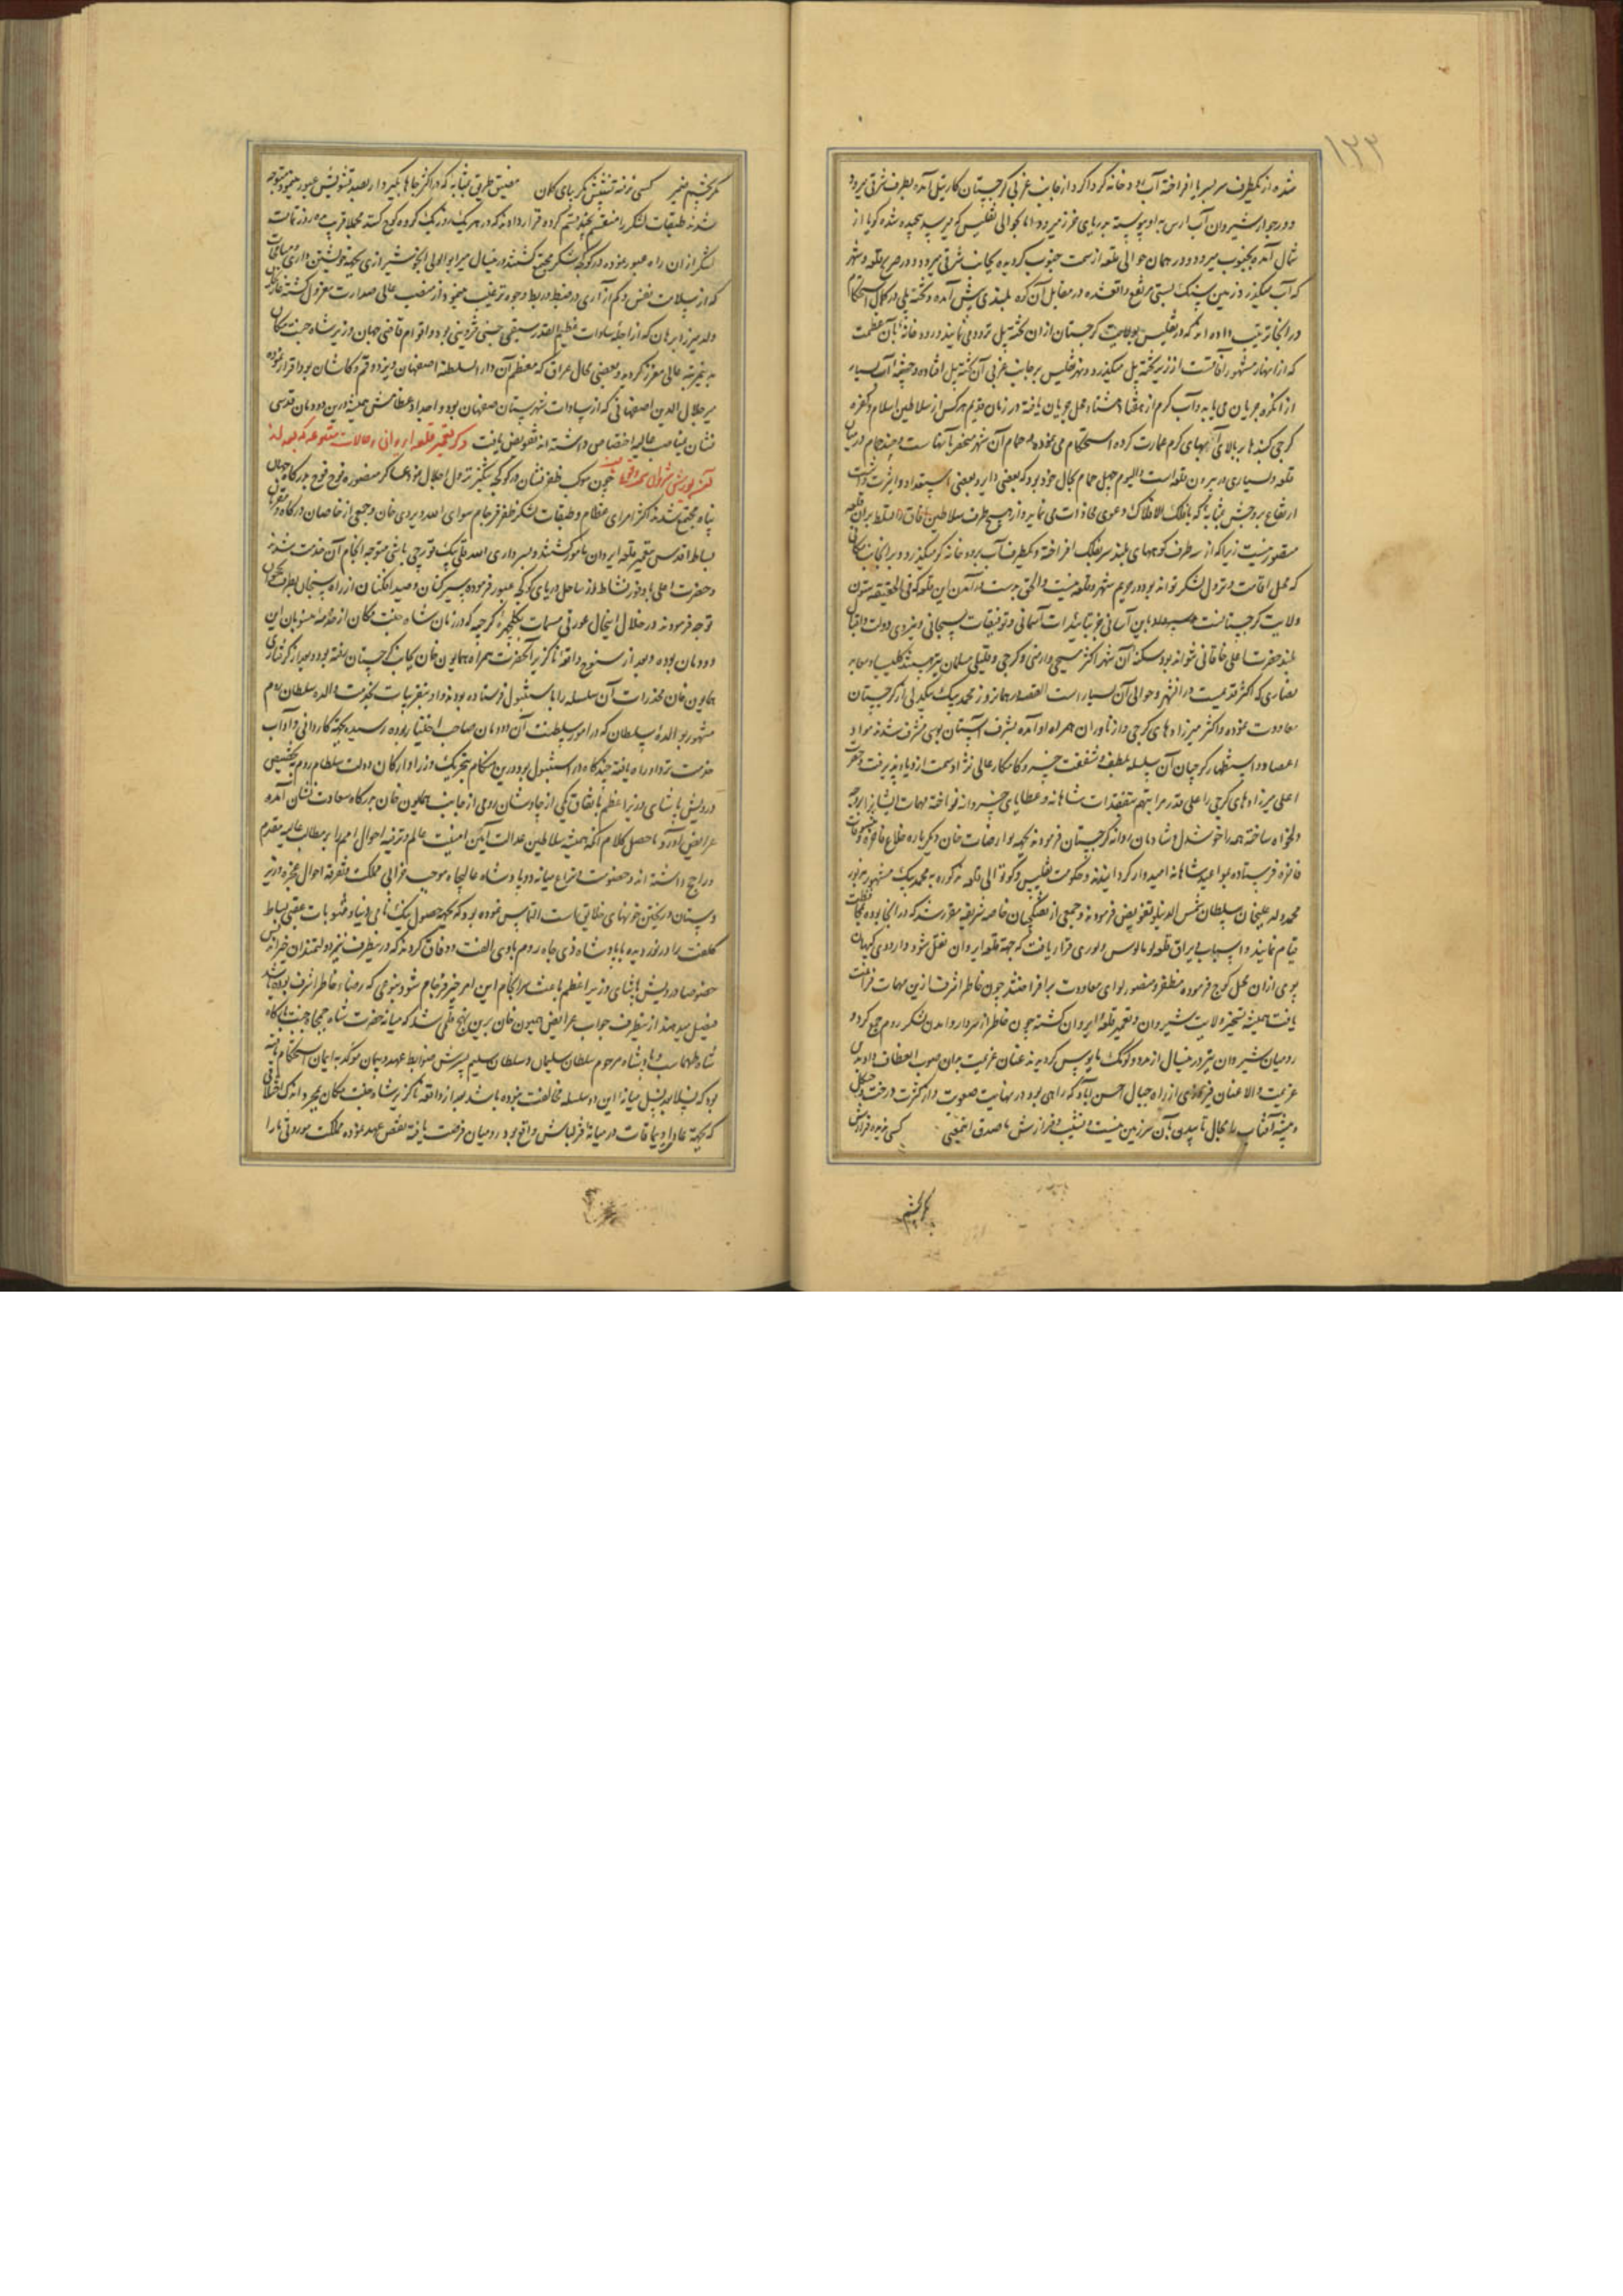 ۱۲۳
شده از یکطرف سر بسر با فراخته آب رودخانه کر کرد از جانب غربی کرجستان کارتیل آمده بطرف شرقی میرود
و در جواز شیروان آب ارس به او پیوسته بدریای خزر میرود اما بحوالی تفلیس که میرسد پیچیده شده گویا از
شمال آمده بجنوب میرود و در همان حوالی قلعه از سمت جنوب گردیده بجانب شرقی میرود و در مقابل قلعه و شهر
که آب میگذرد زمین سنگ بستی مرتفع واقعشده در مقابل آن کوه بلندی پیش آمده و تخته پلی در کمال استحکام
در آنجا ترتیب داده‌اند که از تفلیس بولایت کرجستان از آن تخته پل تردد می‌نمایند و رودخانه بآن عظمت
که از انهار مشهور آفاقست از زیر تخته پل میگذرد و شهر تفلیس بر جانب غربی آن تخته پل افتاده و چشمه آب بسیار
از آن کوه جریان می‌یابد و آب گرم از هفتاد هشتاد محل جریان یافته در زمان قدیم هر کس از سلاطین اسلام و کفره
کرجی گنبدها بر بالای آبهای گرم عمارت کرده استحکام می‌نموده و حمام آن شهر منحصر بآنهاست و چند حمام در میان
قلعه و بسیاری در بیرون قلعه است و الیوم چهل حمام بحال خود بود که بعضی دایر و بعضی استعداد دایر شدن داشت
ارتفاع بروجش بمثابه که با فلک الافلاک دعوی محاذات می‌نماید و از هیچ طرف سلاطین آفاق را تسلط بر آن قلعه
متصور نیست زیرا که از سه طرف کوههای بلند سر بفلک افراخته و یکطرف آب رودخانه کر میگذرد و بر آنجانب مکانی
که محل اقامت و نزول لشکر تواند بود در حریم شهر و قلعه نیست والحق بدست درآمدن این قلعه که فی الحقیقه ستون
ولایت کرجستانست باین آسانی جز بتائیدات آسمانی و توفیقات سبحانی و نیروی دولت و اقبال
بلند حضرت اعلی خاقانی نتواند بود سکنه آن شهر اکثر مسیحی و ارمنی و کرجی و قلیلی مسلمان نیز میباشند کلیسیا و معابد
نصاری که اکثر قدیمیست در آن شهر و حوالی آن بسیار است القصه در همانروز محمد بیک بیکدلی از کرجستان
معاودت نموده و اکثر میرزادهای کرجی و ازناوران همراه او آمده بشرف آستان بوسی مشرف شدند مواد
اعتضاد و استظهار کرجیان آن سلسله بلطف و شفقت خسرو کامکار عالی نژاد سمت ازدیاد پذیرفت و حضرت
اعلی میرزادهای کرجی را علی قدر مراتبهم بتفقدات شاهانه و عطایای خسروانه نواخته مهمات ایشانرا بر وجه
دلخواه ساخته همه را خوشدل و شادمان روانه کرجستان فرمودند بجهة لوارصاب خان دیگر باره خلاع فاخره و
فاخره فرستاده بمواعید شاهانه امیدوار گردانیدند و حکومت تفلیس و کوتوالی قلعه مذکوره به محمد بیک مشهور به نور
محمد ولد علیخان سلطان شمس الدینلو تفویض فرمودند و جمعی از تفنگچیان خاصه شریفه مقرر شد که در آنجا بوده بمحافظت
قیام نمایند و اسباب و یراق قلعه لو مالوس و لوری قرار یافت که بجهة قلعه ایروان نقل شود و اردوی کیهان
پوی از آن محل کوچ فرموده مظفر و منصور لوای معاودت برافراختند چون خاطر اشرف از این مهمات فراغت
یافت همیشه تسخیر ولایت شیروان و تعمیر قلعه ایروان کشته چون خاطر از سردار و آمدن لشکر روم جمع کرد و
رومیان شیروان نیز درینسال از مدد و کومک مایوس گردیدند عنان عزیمت بدان صوب انعطاف دادند
عزیمت والا عنان فیروزی از راه جبال احسن‌آباد که راهی بود در نهایت صعوبت و از کثرت درخت و جنگل
و بیشه آفتاب را مجال تابیدن بآن سرزمین نیست و نشیب و فرازش با صدق انتمایی کسی ندیده فرازش
مگر بچشم
مگر بچشم ضمیر کسی نرفته نشیبش مگر بپای گمان مضیق طریق بمثابه که در اکثر جاها یکسوار بصد تشویش عبور مینمود متوجه
شدند طبقات لشکر را منقسم بچند قسم کرده قرار دادند که در هر یک روز یک گروه کوچ کنند مجملا قریب ده روز تمامت
لشکر از آن راه عبور نموده در کوکجه لشکر مجتمع گشتند درینسال میر ابو الولی انجو شیرازی بجهة خویشتن داری و
که از سلامت نفس و کم آزاری در ضبط و ربط وجوه ترغیب مینمود از منصب عالی صدارت معزول گشته قاضی خان
ولد میرزا برهان که از اجله سادات عظیم القدر سیفی حسنی قزوینی بود و اقوام قاضی جهان وزیر شاه جنت مکان
بدین مرتبه عالی معزز گردید و بعضی محال عراق که معظم آن دار السلطنه اصفهان و یزد و قم و کاشان بود قرار نموده
میر جلال الدین اصفهانی که از سادات شهرستان صفهان بود و اجداد عظامش همیشه درین دودمان قدسی
نشان بمناصب عالیه اختصاص داشته‌اند تفویض یافت ذکر تعمیر قلعه ایروان و حالات متنوعه که بعد از
فتح روی داد چون موکب ظفر نشان در کوکجه تنگیز نزول اجلال نمود عساکر منصوره فوج فوج بدرگاه جهان
پناه مجتمع شدند اکثر امرای عظام و طبقات لشکر ظفر فرجام سوای الله ویردی خان و جمعی از خاصان درگاه و مقربان
بساط اقدس بتعمیر قلعه ایروان مامور گشتند و بسرداری الله قلی بیک قورچی باشی متوجه انجام آن خدمت شدند
و حضرت اعلی با وفور نشاط از ساحل دریای کوکجه عبور فرموده سیر کنان و صید افکنان از راه سیسجان بطرف نخجوان
توجه فرمودند در خلال اینحال عورتی مسمات بگلچهره کرجیه که در زمان شاه جنت مکان از خدمه منسوبان این
دودمان بوده و بعد از سنوح واقعه ناگزیر آنحضرت همراه همایون خان بجانب کرجستان رفته بود و بعد از گرفتاری
همایون خان مخدرات آن سلسله را باستنبول فرستاده بودند و او بتقریبات بخدمت والده سلطان روم
مشهور بوالده سلطان که در امور سلطنت آن دودمان صاحب اختیار بوده رسیده بجهة کاردانی و آداب
خدمت نزد او راه یافته چندگاه در استنبول بود درین هنگام بتحریک وزرا و ارکان دولت سلطان روم بتخصیص
درویش پاشای وزیر اعظم باتفاق یکی از چاوشان رومی از جانب همایون خان بدرگاه سعادت نشان آمده
عرایض آورد ما حصل کلام آنکه همیشه سلاطین عدالت آیین امنیت عالم و ترفیه احوال امم را بر مطالب عالیه مقدم
و راجح داشته‌اند و خصومت و نزاع میانه دو پادشاه عالیجاه موجب خرابی مملکت و تفرقه احوال عجزه و زیر
دستان و ریختن خونهای خلایق است التماس نموده بود که بجهة حصول نیک نامی دنیا و مثوبات عقبی بساط
کلفت را در نوردیده با پادشاه ذی جاه روم بادی الفت و وفاق گردند که در نیطرف نیز دولتمندان خیراندیش
خصوصا درویش پاشای وزیر اعظم باعث سرانجام این امر خیر فرجام شود بنوعی که رضاء خاطر اشرف بوده باشد
فیصل میدهند از ینطرف جواب عرایض همیون خان برین نهج قلمی شد که میانه حضرت شاه جمجاه جنت بارگاه
شاه طهماسب و پادشاه مرحوم سلطان سلیمان و سلطان سلیم پسرش ضوابط عهد و پیمان موکد به ایمان استحکام یافته
بود که نسلا بعد نسل میانه این دو سلسله مخالفت نبوده باشد بعد از واقعه ناگزیر شاه جنت مکان بمجرد اندک اختلافی
که بجهة عادا و یماقات در میانه قزلباش واقع بود رومیان فرصت یافته نقض عهد نموده مملکت موروثی ما را